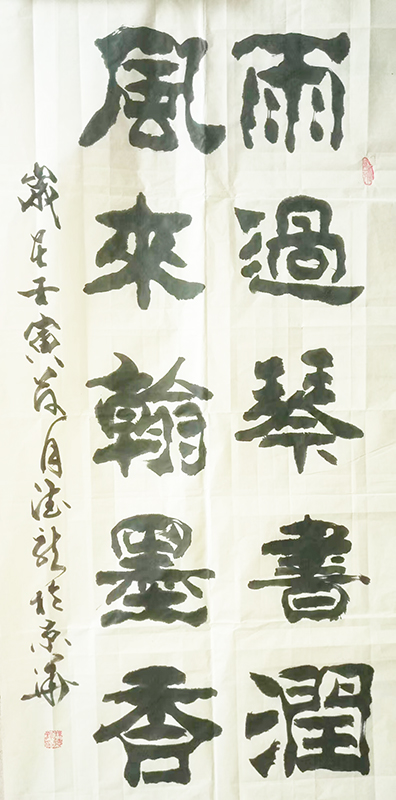 雨過琴書潤
風來翰墨香
歲在壬寅荷月德龍於京華